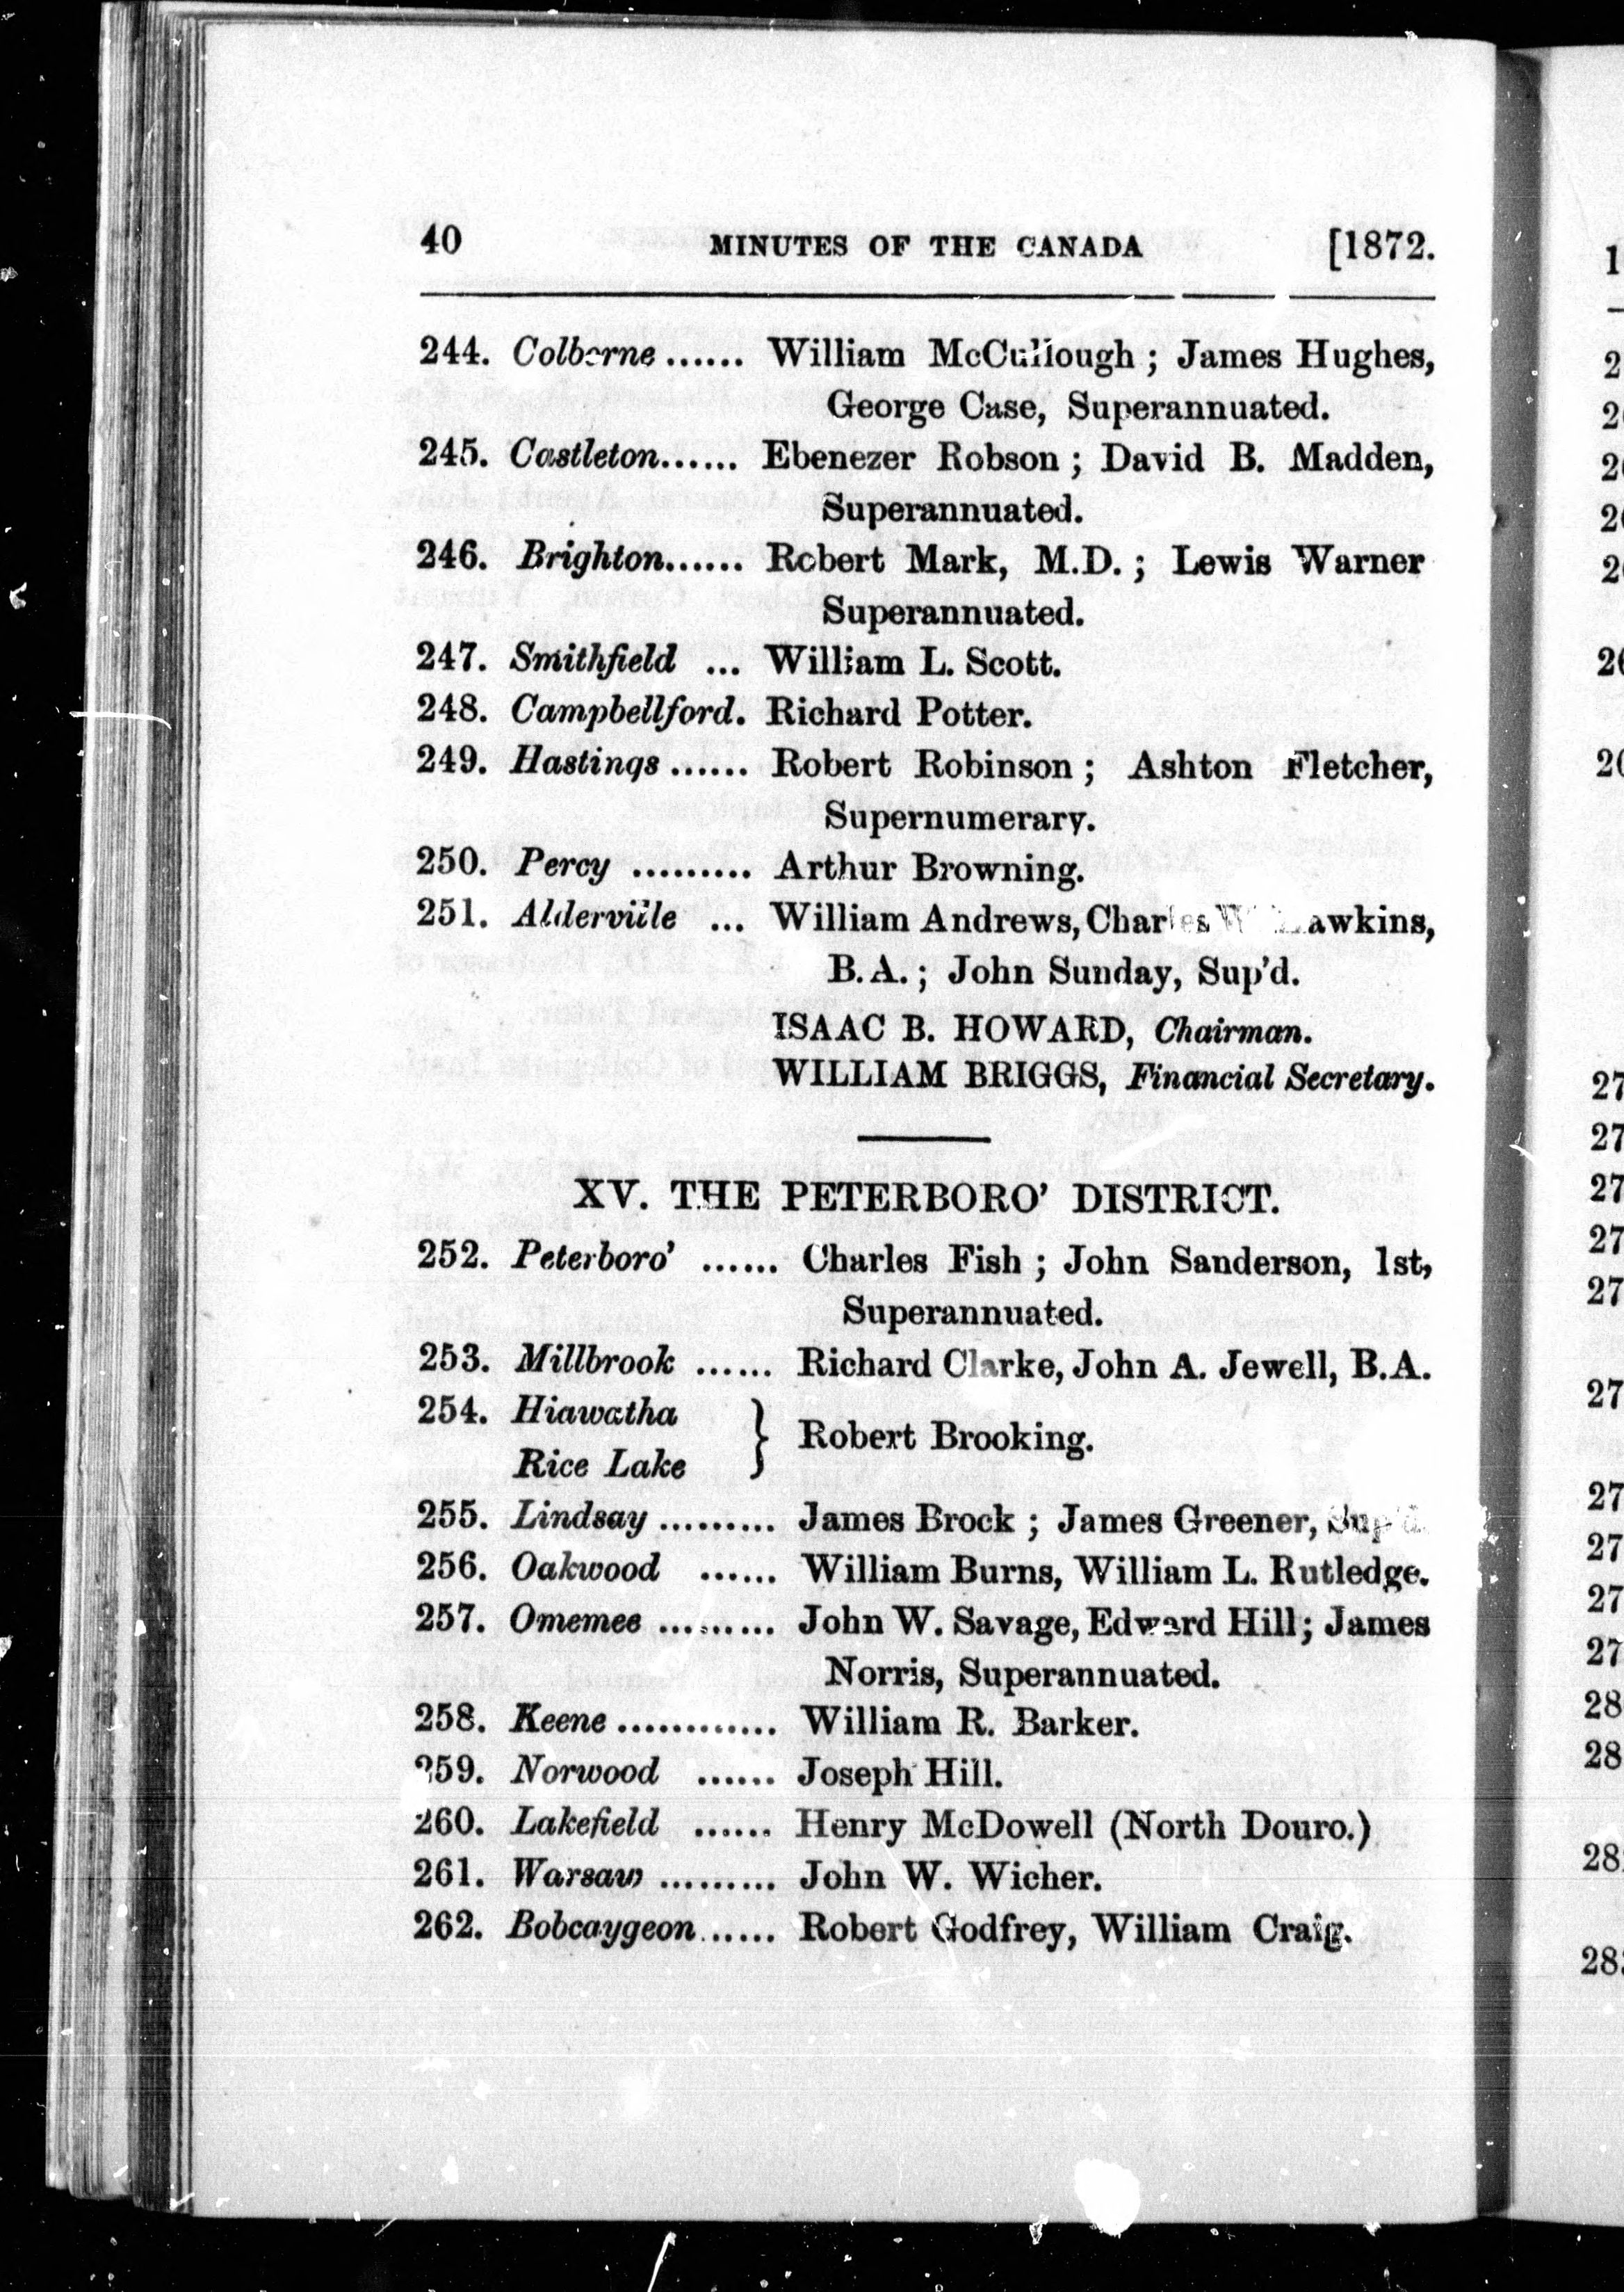 40 MINUTES OF THE CANADA [1872.
244. Colborne...... William McCullough ; James Hughes,
George Case, Superannuated.
245. Castleton...... Ebenezer Robson ; David B. Madden,
Superannuated.
246. Brighton...... Robert Mark, M.D. ; Lewis Warner
Superannuated.
247. Smithfield ... William L. Scott.
248. Campbellford. Richard Potter.
249. Hastings ...... Robert Robinson ; Ashton Fletcher,
Supernumerary.
250. Percy ......... Arthur Browning.
251. Alderville ... William Andrews, Charles W.
B.A. ; John Sunday, Sup'd.
ISAAC B. HOWARD, Chairman.
WILLIAM BRIGGS, Financial Secretary.
XV. THE PETERBORO' DISTRICT.
252. Peterboro' ...... Charles Fish ; John Sanderson, 1st,
Superannuated.
253. Millbrook ...... Richard Clarke, John A. Jewell, B.A.
254. Hiawatha
Rice Lake } Robert Brooking.
255. Lindsay ......... James Brock ; James Greener, Sup'd.
256. Oakwood ...... William Burns, William L. Rutledge.
257. Omemee ......... John W. Savage, Edward Hill; James
Norris, Superannuated.
258. Keene ............ William R. Barker.
259. Norwood ...... Joseph Hill.
260. Lakefield ...... Henry McDowell (North Douro.)
261. Warsaw ......... John W. Wicher.
262. Bobcaygeon...... Robert Godfrey, William Craig.